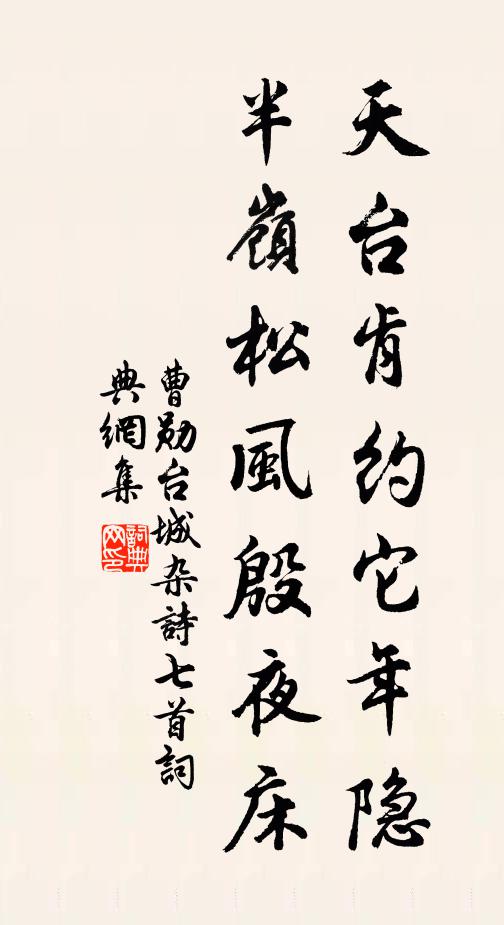 天台肯约它年隐
半嶺松風殷夜床
曹勛台城杂詩七首詞
典網集
詞典網印